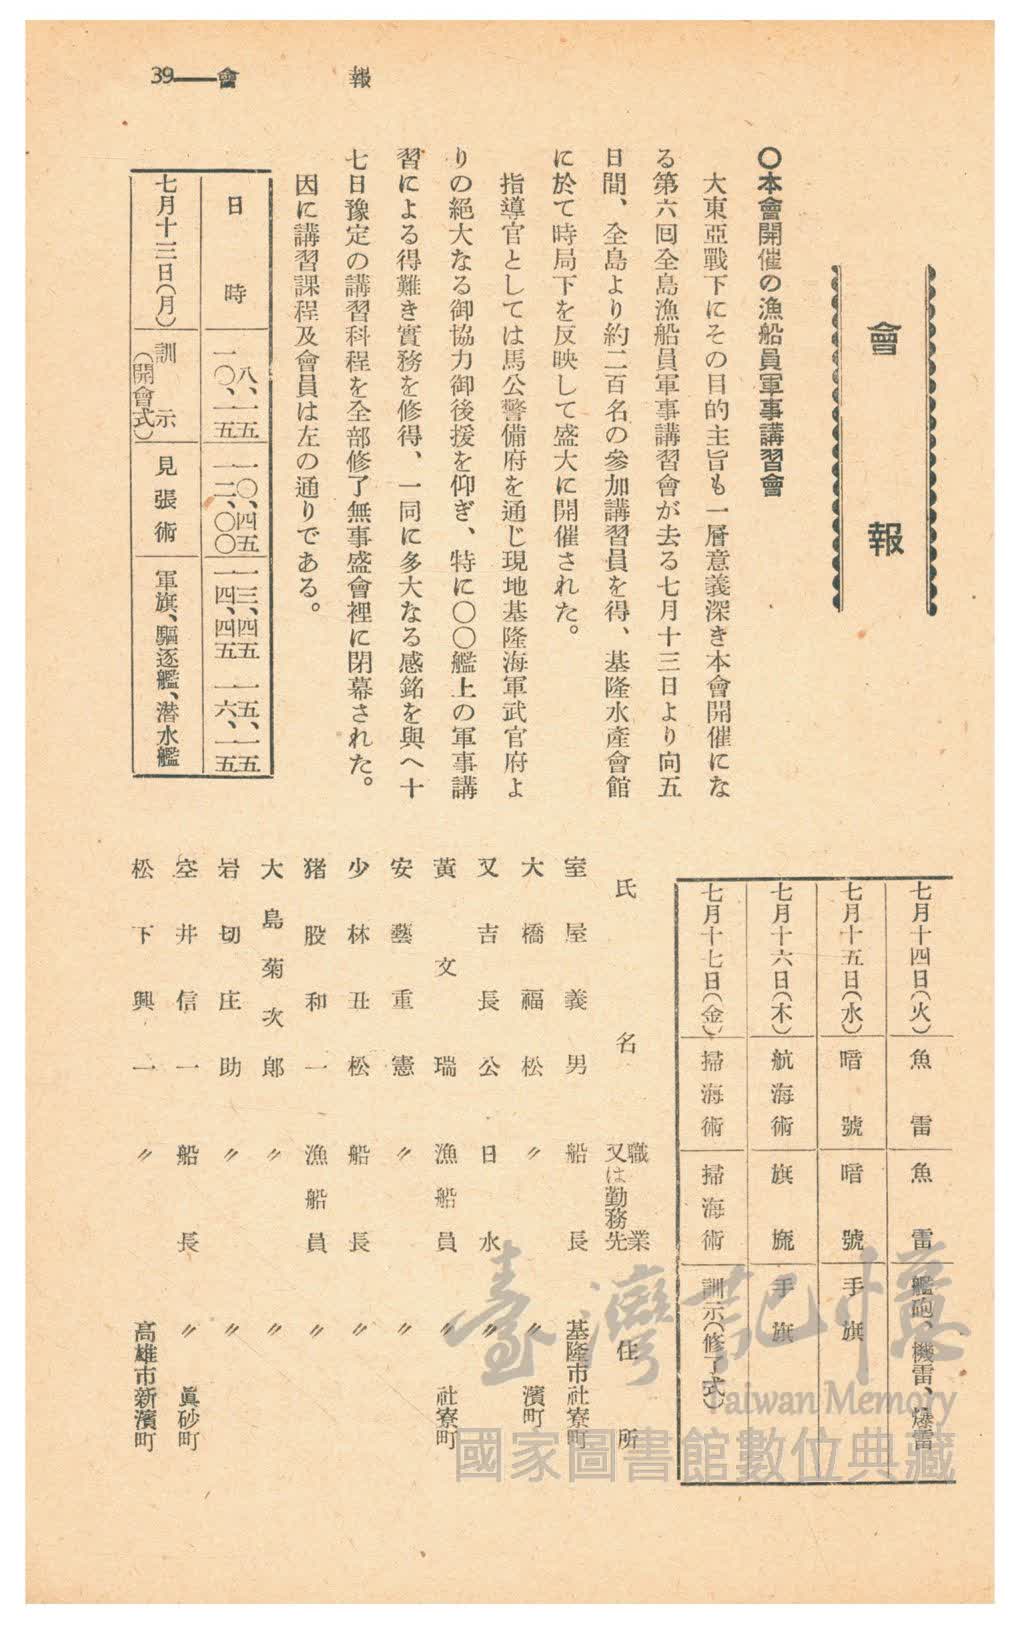 39——會報
會報
〇本會開催の漁船員軍事講習會
大東亞戰下にその目的主旨も一層意義深き本會開催にな
る第六回全島漁船員軍事講習會が去る七月十三日より向五
日間、全島より約二百名の參加講習員を得、基隆水產會館
に於て時局下を反映して盛大に開催された。
指導官としては馬公警備府を通じ現地基隆海軍武官府よ
りの絕大なる御協力御後援を仰ぎ、特に〇〇艦上の軍事講
習による得難き實務を修得、一同に多大なる感銘を與へ十
七日豫定の講習科程を全部修了無事盛會裡に閉幕された。
因に講習課程及會員は左の通りである。
日時 八、一五 一〇、一五 一〇、四五 一二、〇〇 一三、四五 一四、四五 一五、一五 一六、一五
七月十三日(月) 訓示(開會式) 見張術 軍旗、驅逐艦、潜水艦
七月十四日(火) 魚雷 魚雷 艦砲、機雷、爆雷
七月十五日(水) 暗號 暗號 手旗
七月十六日(木) 航海術 旗旒 手旗
七月十七日(金) 掃海術 掃海術 訓示(修了式)
氏名 職業又は勤務先 住所
室屋義男 船長 基隆市社寮町
大橋福松 〃 〃 濱町
又吉長公 日水 〃
黃文瑞 漁船員 〃 社寮町
安藝重憲 〃 〃
少林丑松 船長 〃
猪股和一 漁船員 〃
大島菊次郎 〃 〃
岩切庄助 〃 〃
室井信一 船長 〃 眞砂町
松下興一 〃 高雄市新濱町
臺灣記憶
Taiwan Memory
國家圖書館數位典藏